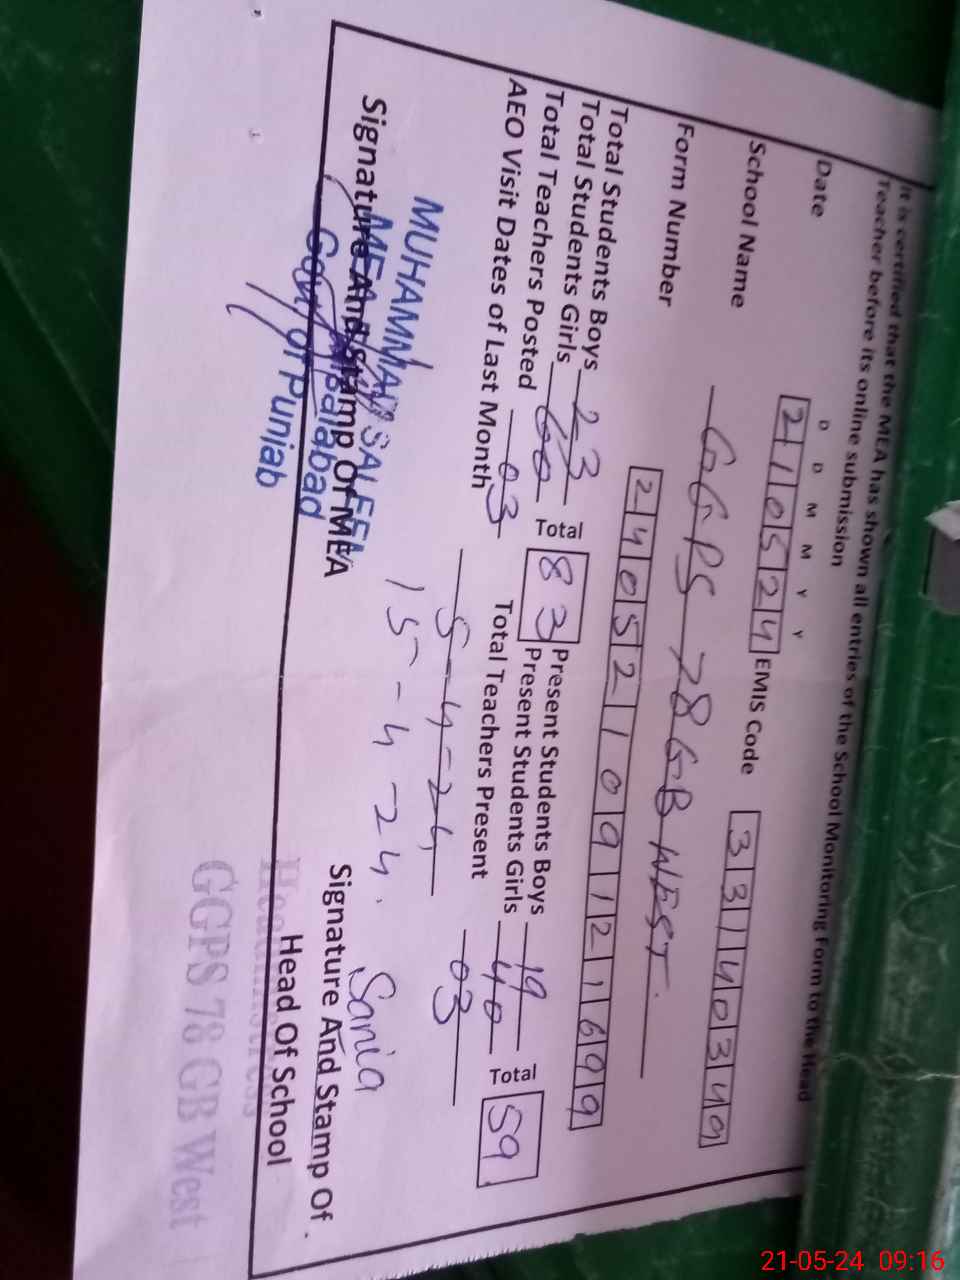 It is certified that the MEA has shown all entries of the School Monitoring Form to the Head
Teacher before its online submission
D D M M Y Y
Date 210524 EMIS Code 33140349
School Name GGPS 78 GB WEST.
Form Number 240521091211699
Total Students Boys 23 Total 83 Present Students Boys 19 Total 59
Total Students Girls 60 Present Students Girls 40
Total Teachers Posted 03 Total Teachers Present 03
AEO Visit Dates of Last Month 5-4-24
15-4-24.
MUHAMMAD SALEEM
MEA
Signature And Stamp Of MEA
Govt of Punjab
Sania
Signature And Stamp Of
Head Of School
Headmistress
GGPS 78 GB West
21-05-24 09:16